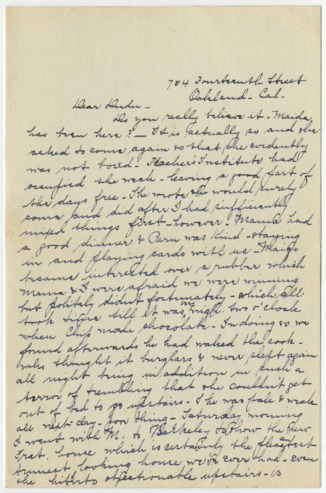 784 Fourteenth Street
Oakland - Cal.
Dear Dudu -
Do you really believe it - Maida
has been here? - It is actually so and she
asked to come again so that she evidently
was not bored - Teacher's Institute had
occupied the week - leaving a good part of
the days free - She wrote she would surely
come, and did after I had sufficiently
mixed things first - however. Mama had
a good dinner & Pam was kind - staying
in and playing cards with us -
became interested over a rubber which
Mama & I were afraid we were winning
but politely didn't fortunately - which all
took time till it was nigh two o'clock
when Chip made chocolate - In doing so we
found afterwards he had waked the cook -
who thought it burglars & never slept again
all night being in addition in such a
terror of trembling that she couldn't get
out of bed to go upstairs - She was pale & weak
all next day - poor thing - Saturday morning
I went with M. to Berkeley to show the new
Frat. house which is certainly the pleasantest
looking house we've ever had - even
the objectionable upstairs - is